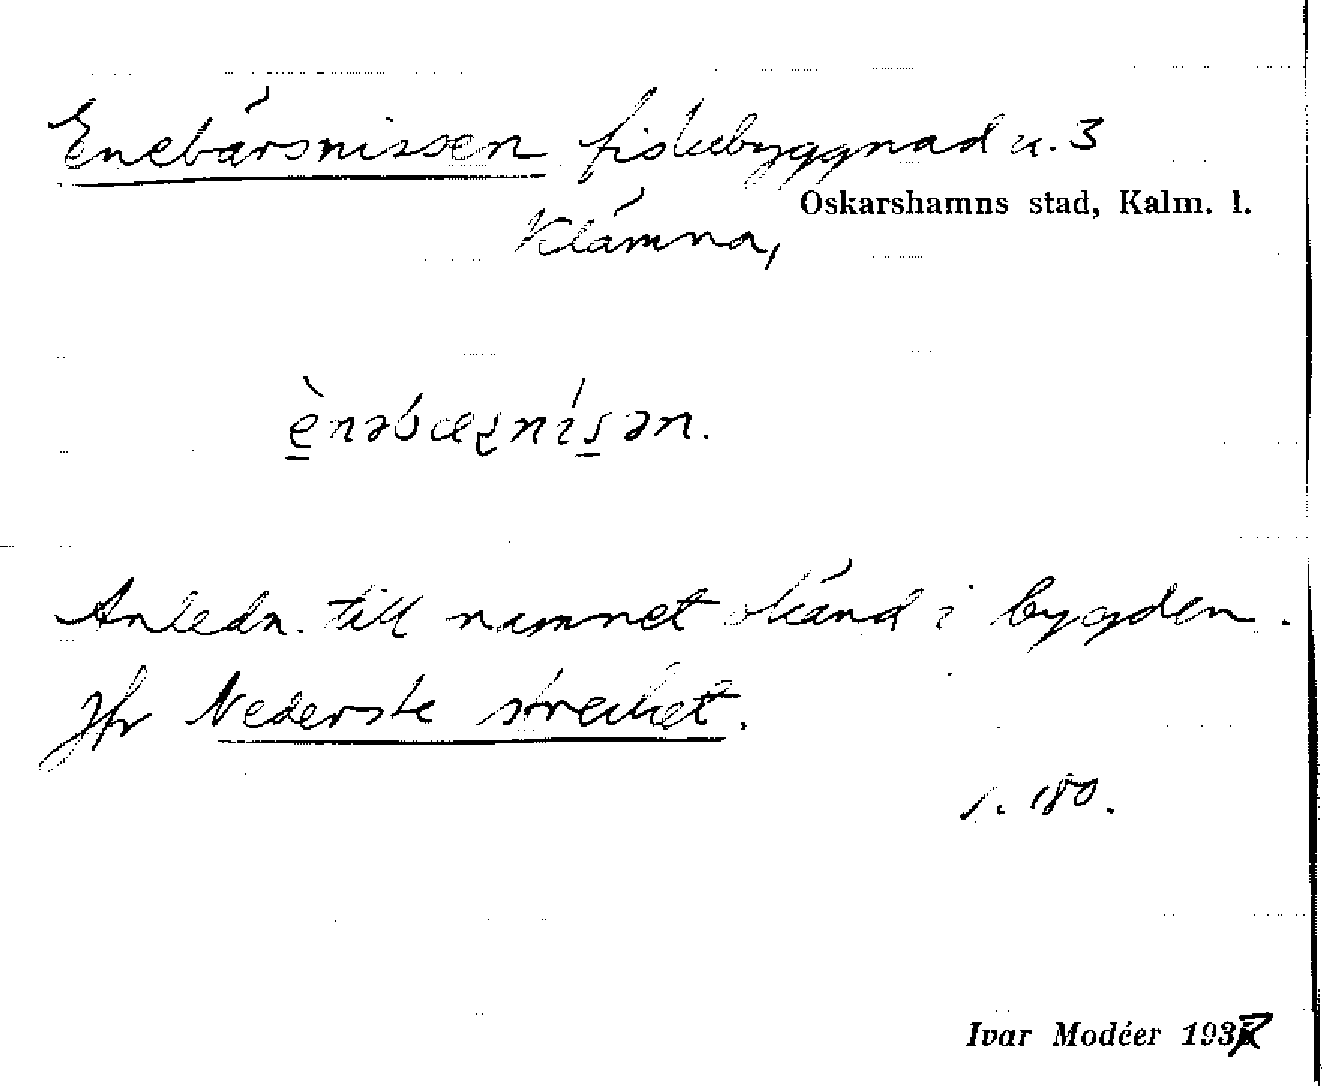 Enebärsnissen fiskebyggnad n. 3
Oskarshamns stad, Kalm. l.
Klämna,
Anledn. till namnet okänd i bygden.
Jfr Nederste strecket.
1. 180.
Ivar Modéer 1937